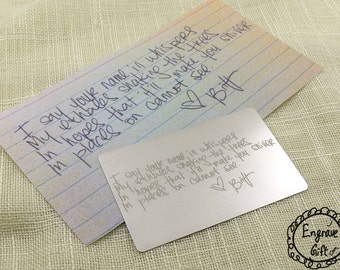 I say your name in whispers
My exhales shaking the trees
In hopes that it'll make you shiver
In places you cannot see
♡ Britt
I say your name in whispers
My exhales shaking the trees
In hopes that it'll make you shiver
In places you cannot see
♡ Britt
Engrave
Gift